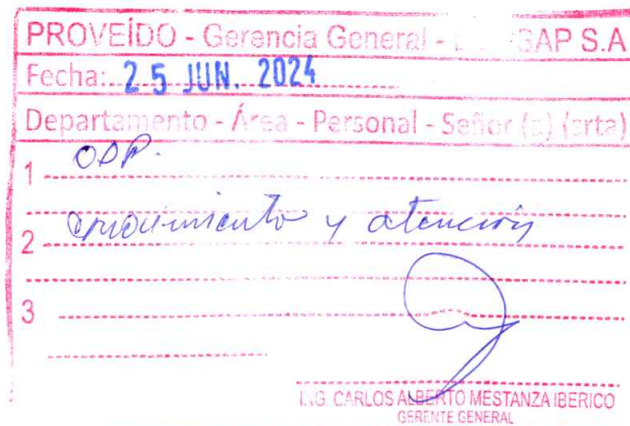 PROVEÍDO - Gerencia General - SAP S.A
Fecha: 25 JUN. 2024
Departamento - Área - Personal - Señor (a) (srta)
1
2 y atención
3
ING. CARLOS ALBERTO MESTANZA IBERICO
GERENTE GENERAL